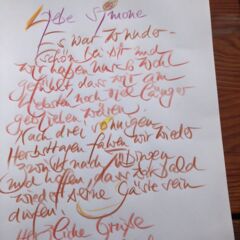 Liebe Simone
Es war wunder-
schön bei dir und
wir haben uns so wohl
gefühlt dass wir am
liebsten noch viel länger
geblieben wären.
Nach drei sonnigen
Herbsttagen fahren wir wieder
zurück nach
und hoffen dass wir bald
wieder deine Gäste sein
dürfen!
Herzliche Grüße